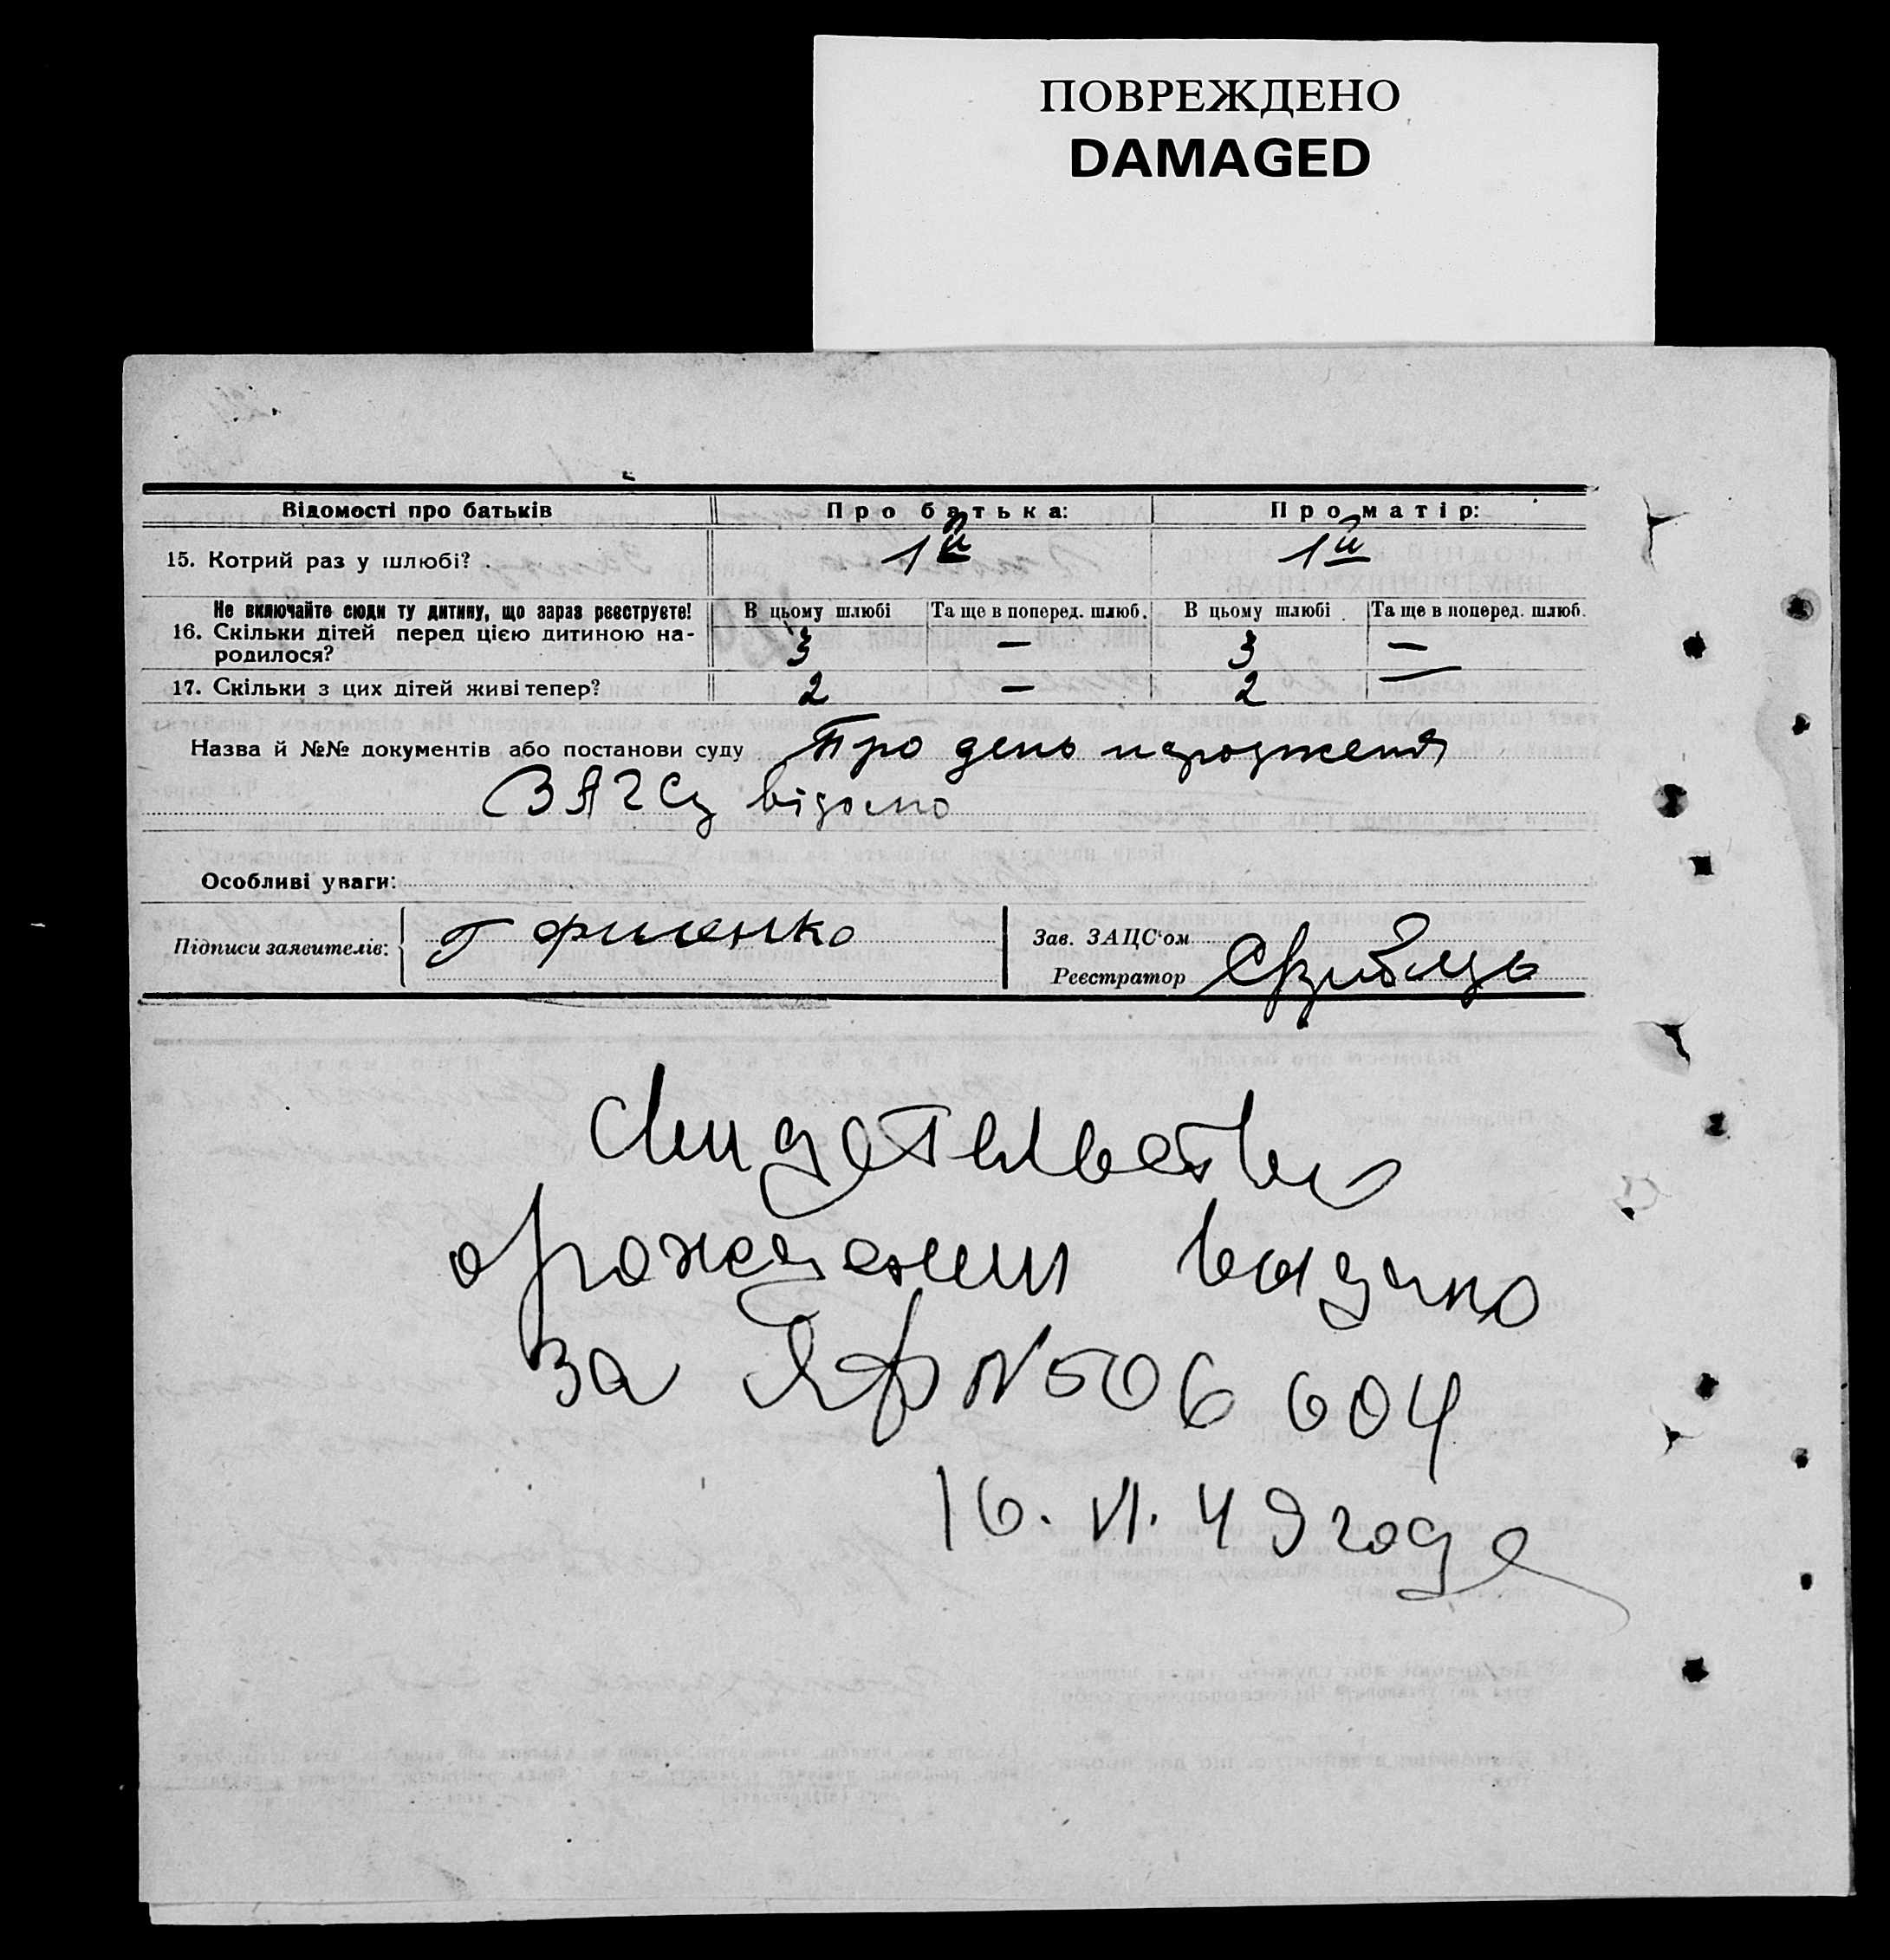 ПОВРЕЖДЕНО
DAMAGED
Відомості про батьків Про батька: Про матір:
15. Котрий раз у шлюбі? 1й 1й
Не включайте сюди ту дитину, що зараз реєструєте! В цьому шлюбі Та ще в поперед. шлюб. В цьому шлюбі Та ще в поперед. шлюб.
16. Скільки дітей перед цією дитиною на-
родилося? 3 — 3 —
17. Скільки з цих дітей живі тепер? 2 — 2 —
Назва й №№ документів або постанови суду Про день народження
ЗАГСу відомо
Особливі уваги:
Підписи заявителів: Зав. ЗАЦС'ом
Реєстратор
Свидетельство
о рождении выдано
за ЯФ N 506604
16. VI. 49 года